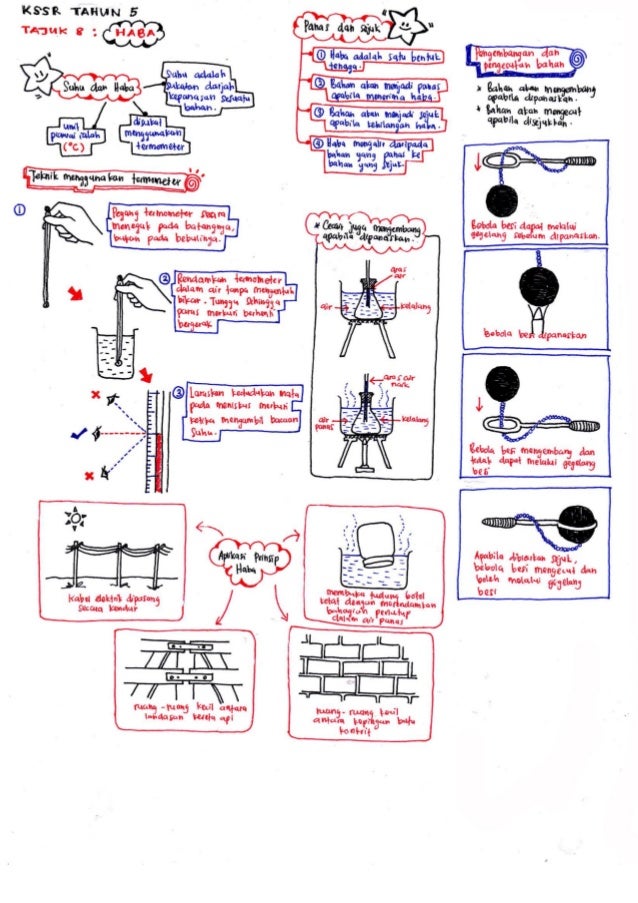 KSSR TAHUN 5
TAJUK 8 : HABA
Suhu dan Haba
Suhu adalah
sukatan darjah
kepanasan sesuatu
bahan.
unit
piawai ialah
(°C)
disukat
menggunakan
termometer
Panas dan Sejuk
① Haba adalah satu bentuk
tenaga.
② Bahan akan menjadi panas
apabila menerima haba.
③ Bahan akan menjadi sejuk
apabila kehilangan haba.
④ Haba mengalir daripada
bahan yang panas ke
bahan yang sejuk.
Pengembangan dan
pengecutan bahan
* Bahan akan mengembang
apabila dipanaskan.
* Bahan akan mengecut
apabila disejukkan.
Bebola besi dapat melalui
gegelang sebelum dipanaskan.
Bebola besi dipanaskan
Bebola besi mengembang dan
tidak dapat melalui gegelang
besi
Apabila dibiarkan sejuk,
bebola besi mengecut dan
boleh melalui gegelang
besi
Teknik menggunakan termometer
①
Pegang termometer secara
menegak pada batangnya,
bukan pada bebulinya.
② Rendamkan termometer
dalam air tanpa menyentuh
bikar. Tunggu sehingga
paras merkuri berhenti
bergerak
③ Laraskan kedudukan mata
pada meniskus merkuri
ketika mengambil bacaan
suhu.
* Cecair juga mengembang
apabila dipanaskan.
aras
air
air
kelalang
aras air
naik
air
panas
kelalang
Aplikasi Prinsip
Haba
Kabel elektrik dipasang
secara kendur
membuka tudung botol
ketat dengan merendamkan
bahagian penutup
dalam air panas
ruang-ruang kecil antara
landasan kereta api
ruang-ruang kecil
antara kepingan batu
konkrit